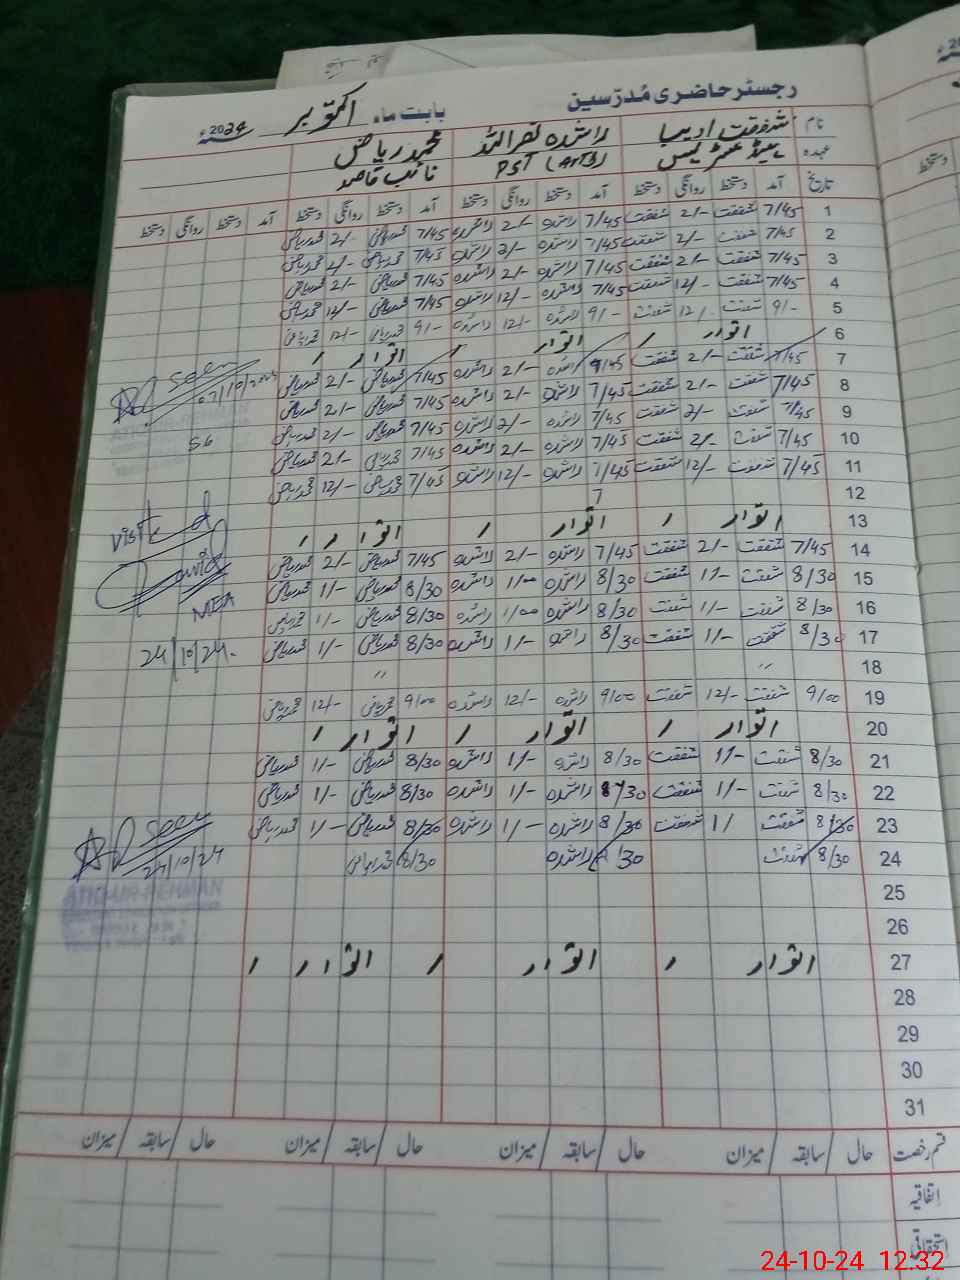 رجسٹر حاضری مُدرّسین بابت ماہ اکتوبر 2024ء
نام شفقت ادیبا راشدہ نصراللہ محمد ریاض
عہدہ ہیڈ مسٹریس PST (Arts) نائب قاصد
تاریخ آمد دستخط روانگی دستخط آمد دستخط روانگی دستخط آمد دستخط روانگی دستخط آمد دستخط روانگی دستخط
1 7/45 شفقت 2/- شفقت 7/45 راشدہ 2/- راشدہ 7/45 محمد ریاض 2/- محمد ریاض
2 7/45 شفقت 2/- شفقت 7/45 راشدہ 2/- راشدہ 7/45 محمد ریاض 2/- محمد ریاض
3 7/45 شفقت 2/- شفقت 7/45 راشدہ 2/- راشدہ 7/45 محمد ریاض 2/- محمد ریاض
4 7/45 شفقت 12/- شفقت 7/45 راشدہ 12/- راشدہ 7/45 محمد ریاض 12/- محمد ریاض
5 9/- شفقت 12/- شفقت 9/- راشدہ 12/- راشدہ 9/- محمد ریاض 12/- محمد ریاض
6 اتوار / اتوار / اتوار /
7 7/45 شفقت 2/- شفقت 7/45 راشدہ 2/- راشدہ 7/45 محمد ریاض 2/- محمد ریاض
8 7/45 شفقت 2/- شفقت 7/45 راشدہ 2/- راشدہ 7/45 محمد ریاض 2/- محمد ریاض
9 7/45 شفقت 2/- شفقت 7/45 راشدہ 2/- راشدہ 7/45 محمد ریاض 2/- محمد ریاض
10 7/45 شفقت 2/- شفقت 7/45 راشدہ 2/- راشدہ 7/45 محمد ریاض 2/- محمد ریاض
11 7/45 شفقت 12/- شفقت 7/45 راشدہ 12/- راشدہ 7/45 محمد ریاض 12/- محمد ریاض
12 7
13 اتوار / اتوار / اتوار /
14 7/45 شفقت 2/- شفقت 7/45 راشدہ 2/- راشدہ 7/45 محمد ریاض 2/- محمد ریاض
15 8/30 شفقت 1/- شفقت 8/30 راشدہ 1/00 راشدہ 8/30 محمد ریاض 1/- محمد ریاض
16 8/30 شفقت 1/- شفقت 8/30 راشدہ 1/00 راشدہ 8/30 محمد ریاض 1/- محمد ریاض
17 8/30 شفقت 1/- شفقت 8/30 راشدہ 1/- راشدہ 8/30 محمد ریاض 1/- محمد ریاض
18 〃 〃
19 9/00 شفقت 12/- شفقت 9/00 راشدہ 12/- راشدہ 9/00 محمد ریاض 12/- محمد ریاض
20 اتوار / اتوار / اتوار /
21 8/30 شفقت 1/- شفقت 8/30 راشدہ 1/- راشدہ 8/30 محمد ریاض 1/- محمد ریاض
22 8/30 شفقت 1/- شفقت 8/30 راشدہ 1/- راشدہ 8/30 محمد ریاض 1/- محمد ریاض
23 8/30 شفقت 1/ شفقت 8/30 راشدہ 1/- راشدہ 8/30 محمد ریاض 1/- محمد ریاض
24 8/30 شفقت 8/30 راشدہ 8/30 محمد ریاض
25
26
27 اتوار / اتوار / اتوار /
28
29
30
31
قسم رخصت حال / سابقہ / میزان حال / سابقہ / میزان حال / سابقہ / میزان حال / سابقہ / میزان
اتفاقیہ
استحقاقی
Seen
07/10/2024
56
Visited
MEA
24/10/24.
Seen
24/10/24
ATIKH-UR-REHMAN
24-10-24 12:32